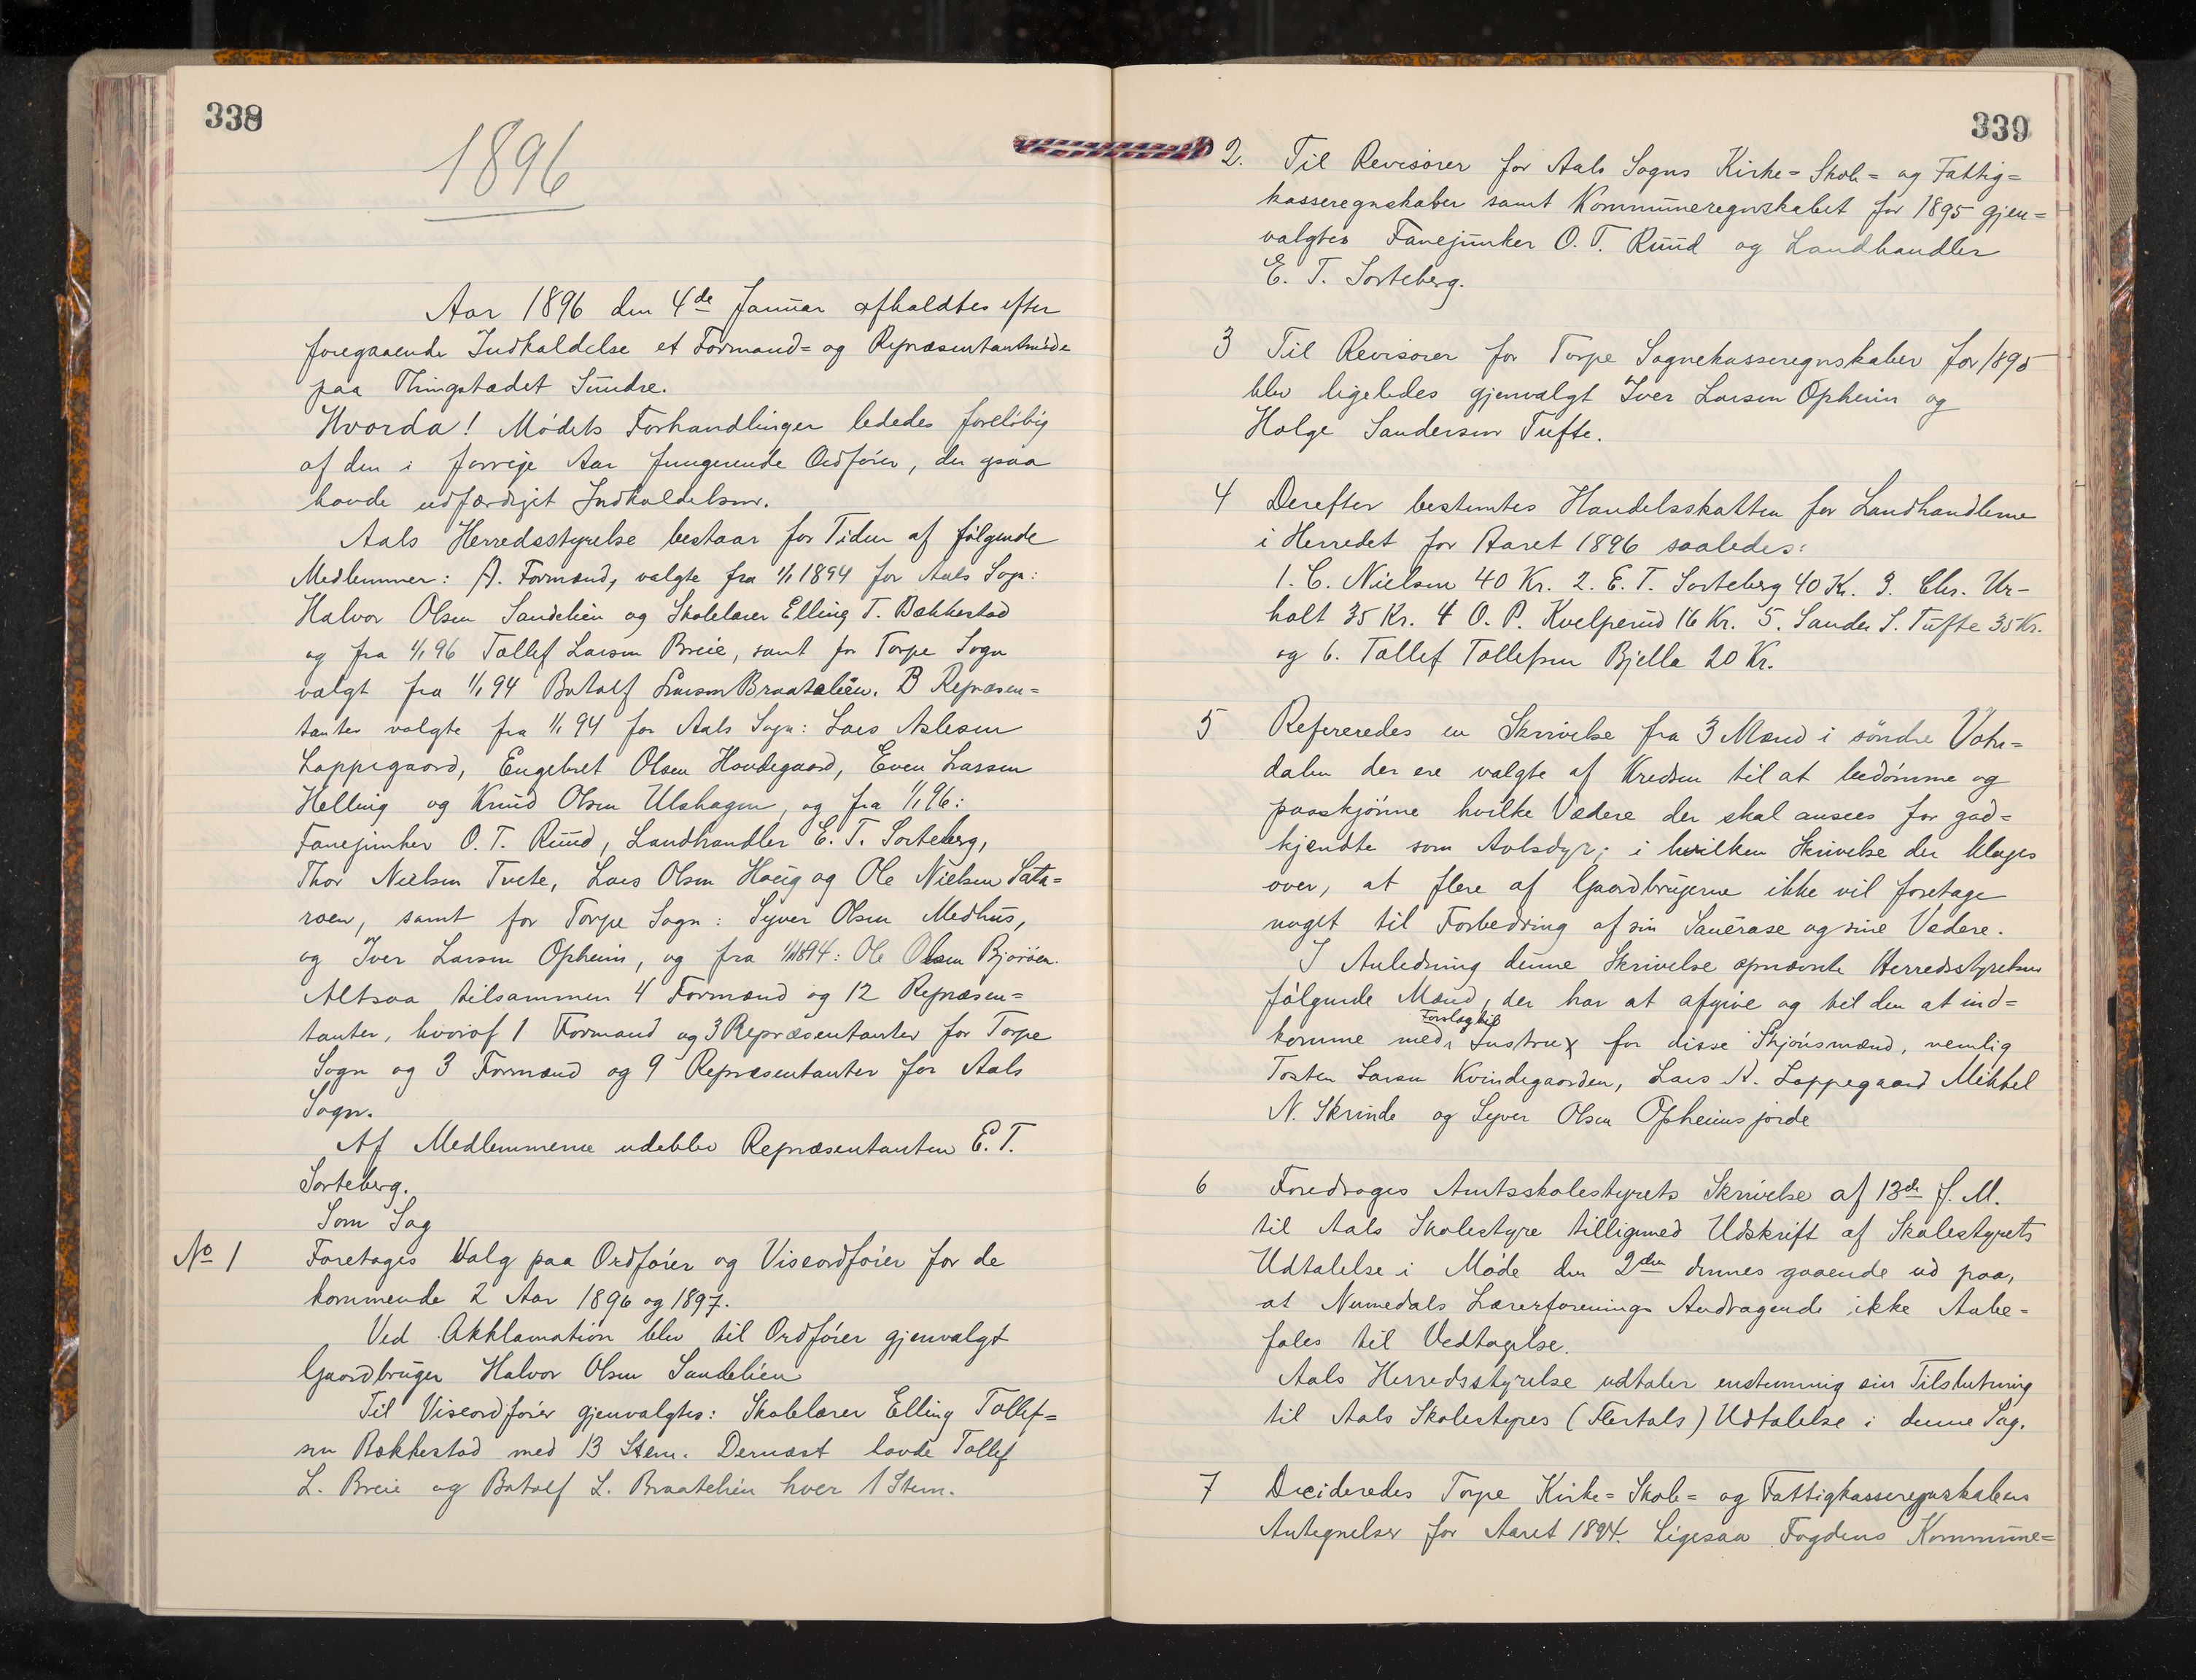 338
1896
Aar 1896 den 4de Januar afholdtes efter
foregaaende Indkaldelse et Formand= og Repræsentantmøde
paa Thingstædet Sundre.
Hvorda! Mødets Forhandlinger lededes foreløbig
af den i forrige Aar fungerende Ordfører, der ogsaa
havde udfærdiget Indkaldelsen.
Aals Herredsstyrelse bestaar for Tiden af følgende
Medlemmer: A. Formænd, valgte fra 1/1 1894 for Aals Sogn:
Halvor Olsen Sandelien og Skolelærer Elling T. Bækkestad
og fra 1/1 96 Tollef Larsen Breie, samt for Torpe Sogn
valgt fra 1/1 94 Botolf Larsen Braatalien. B Repræsen=
tanter valgte fra 1/1 94 for Aals Sogn: Lars Aslesen
Loppegaard, Engebret Olsen Hovdegaard, Even Larsen
Helling og Knud Olsen Ulshagen, og fra 1/1 96:
Fanejunker O. T. Ruud, Landhandler E. T. Sorteberg,
Thor Nielsen Tvete, Lars Olsen Haug og Ole Nielsen Sata=
roen, samt for Torpe Sogn: Syver Olsen Medhus,
og Iver Larsen Opheim, og fra 1/1 1894: Ole Olsen Bjorøen.
Altsaa tilsammen 4 Formænd og 12 Repræsen=
tanter, hvoraf 1 Formand og 3 Repræsentanter for Torpe
Sogn og 3 Formænd og 9 Repræsentanter for Aals
Sogn.
Af Medlemmerne udeblev Repræsentanten E. T.
Sorteberg.
Som Sag
No 1 Foretoges Valg paa Ordfører og Viseordfører for de
kommende 2 Aar 1896 og 1897.
Ved Akklamation blev til Ordfører gjenvalgt
Gaardbruger Halvor Olsen Sandelien
Til Viseordfører gjenvalgtes: Skolelærer Elling Tollef=
sen Bækkestad med 13 Stem. Dernæst havde Tollef
L. Breie og Botolf L. Braatelien hver 1 Stem.
339
2. Til Revisorer for Aals Sogns Kirke= Skole= og Fattig=
kasseregnskaber samt Kommuneregnskabet for 1895 gjen=
valgtes Fanejunker O. T. Ruud og Landhandler
E. T. Sorteberg.
3 Til Revisorer for Torpe Sognekasseregnskaber for 1895
blev ligeledes gjenvalgt Iver Larsen Opheim og
Holge Sandersen Tufte.
4 Derefter bestemtes Handelsskatten for Landhandlerne
i Herredet for Aaret 1896 saaledes:
1. C. Nielsen 40 Kr. 2. E. T. Sorteberg 40 Kr. 3. Chr. Ur-
holt 35 Kr. 4 O. P. Kvelprud 16 Kr. 5. Sander S. Tufte 35 Kr.
og 6. Tollef Tollefsen Bjella 20 Kr.
5 Refereredes en Skrivelse fra 3 Mænd i søndre Votn=
dalen der ere valgte af Kredsen til at bedømme og
paaskjønne hvilke Vædere der skal ansees for god=
kjendte som Avlsdyr; i hvilken Skrivelse der klages
over, at flere af Gaardbrugerne ikke vil foretage
noget til Forbedring af sin Sauerase og sine Vædere.
I Anledning denne Skrivelse opnævnte Herredsstyrelsen
følgende Mænd, der har at afgive og til den at ind=
komme med Forslag til Instrux for disse Skjønsmænd, nemlig
Torsten Larsen Kvindegaarden, Lars A. Loppegaard Mikkel
N. Skrinde og Syver Olsen Opheimsjorde
6 Foredroges Amtsskolestyrets Skrivelse af 13de f. M.
til Aals Skolestyre tilligemed Udskrift af Skolestyrets
Udtalelse i Møde den 2den dennes gaaende ud paa,
at Numedals Lærerforenings Andragende ikke Anbe=
fales til Vedtagelse.
Aals Herredsstyrelse udtaler enstemmig sin Tilslutning
til Aals Skolestyres (Flertals) Udtalelse i denne Sag.
7 Decideredes Torpe Kirke= Skole= og Fattigkasseregnskabers
Antegnelser for Aaret 1894. Ligesaa Fogdens Kommune=